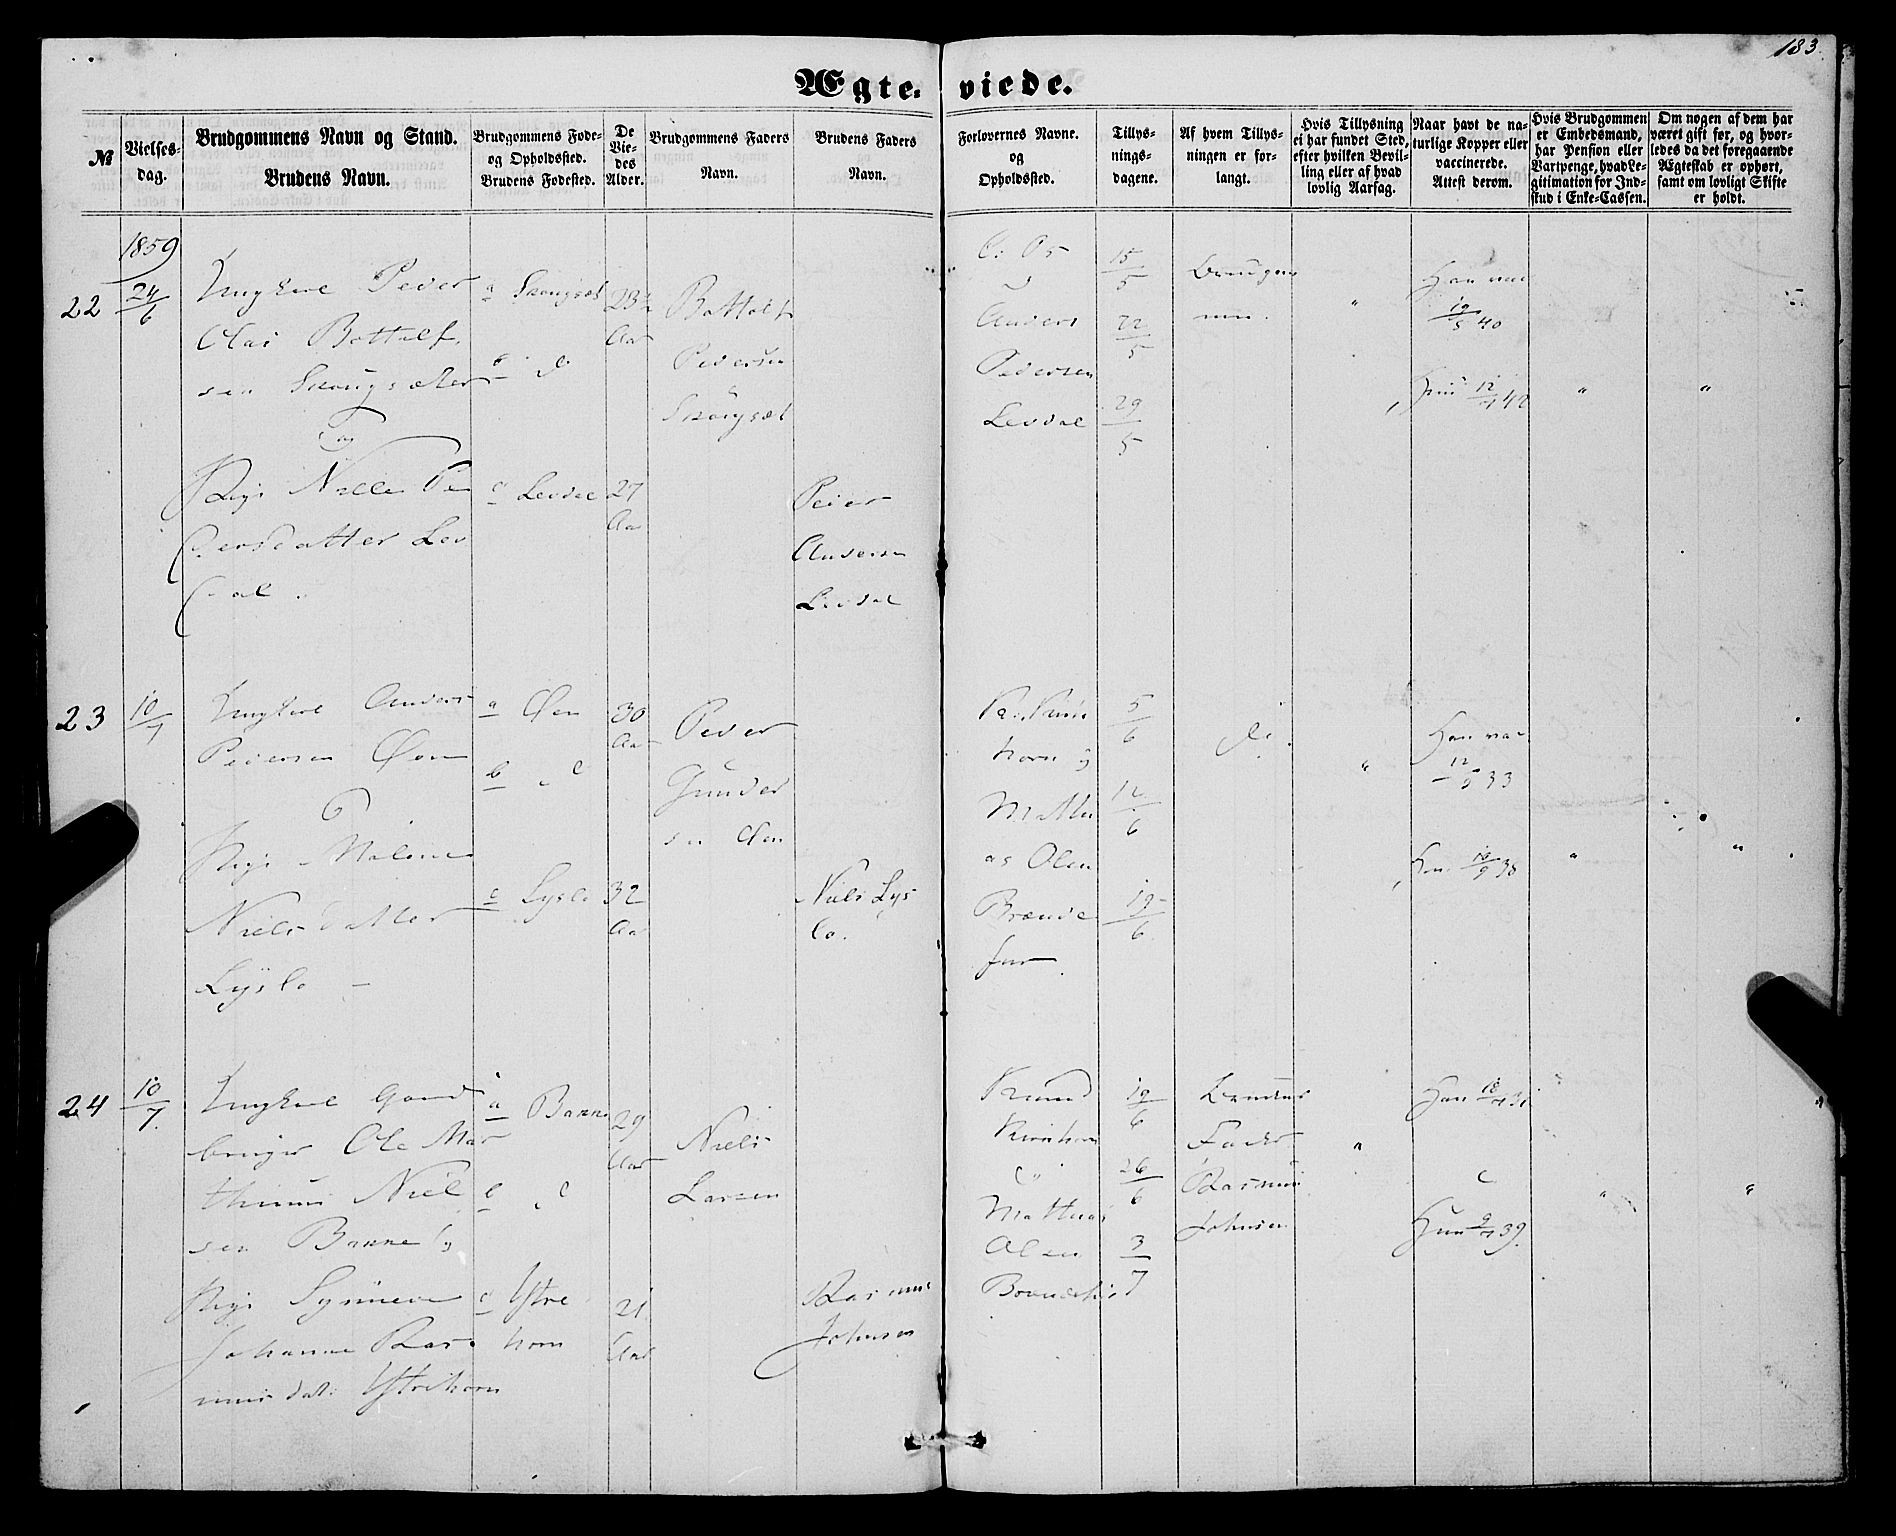 183.
Ægte- viede.
№
Vielses-
dag.
Brudgommens Navn og Stand.
Brudens Navn.
Brudgommens Føde-
og Opholdssted.
Brudens Fødested.
De
Vie-
des
Alder.
Brudgommens Faders
Navn.
Brudens Faders
Navn.
Forlovernes Navne.
og
Opholdssted.
Tillys-
nings-
dagene.
Af hvem Tillys-
ningen er for-
langt.
Hvis Tillysning
ei har fundet Sted,
efter hvilken Bevil-
ling eller af hvad
lovlig Aarsag.
Naar havt de na-
turlige Kopper eller
vaccinerede.
Attest derom.
Hvis Brudgommen
er Embedsmand,
har Pension eller
Vartpenge, hvad Le-
gitimation for Ind-
skud i Enke-Cassen.
Om nogen af dem har
været gift før, og hvor-
ledes da det foregaaende
Ægteskab er ophørt,
samt om lovligt Skifte
er holdt.
1859
22
24/6
Ungkarl Peder
Olai Bottolf
sen Skougsæter
og
Pige Nille Pe
dersdatter Lev
dal.
a Skougsæt
b d
c Levdal
23½
Aar
27
Aar
Bottolf
Pedersen
Skougsæt
Peder
Andersen
Levdal
Anders
Pedersen
Levdal
15/5
22/5
29/5
Brudgom
men.
"
Han vac
19/5 40
Hun 12/7 42
"
"
23
10/7
Ungkarl Anders
Pedersen Øen
og
Pige Malene
Nielsdatter
Lyslo
a Øen
b d
c Lyslo
30
Aar
32
Aar
Peder
Gunder
sen Øen
Niels Lys
lo.
horn og
Matthi
as Olsen
5/6
12/6
19/6
do.
"
Han vac
12/9 33
Hun 16/9 38
"
"
24
10/7
Ungkarl Gaard
bruger Ole Mar
thinus Niel
sen Bakke og
Pige Synneve
Johanne Ras
musdat. Ystrehorn
a Bakke
b d
c Ystre
horn
29
Aar
21
Aar
Niels
Larsen
Rasmus
Johnsen
Knud
og
Matthias
Olsen
19/6
26/6
3/7
Brudens
Fader
Rasmus
Johnsen
"
Han
Hun 9/7 39.
"
"